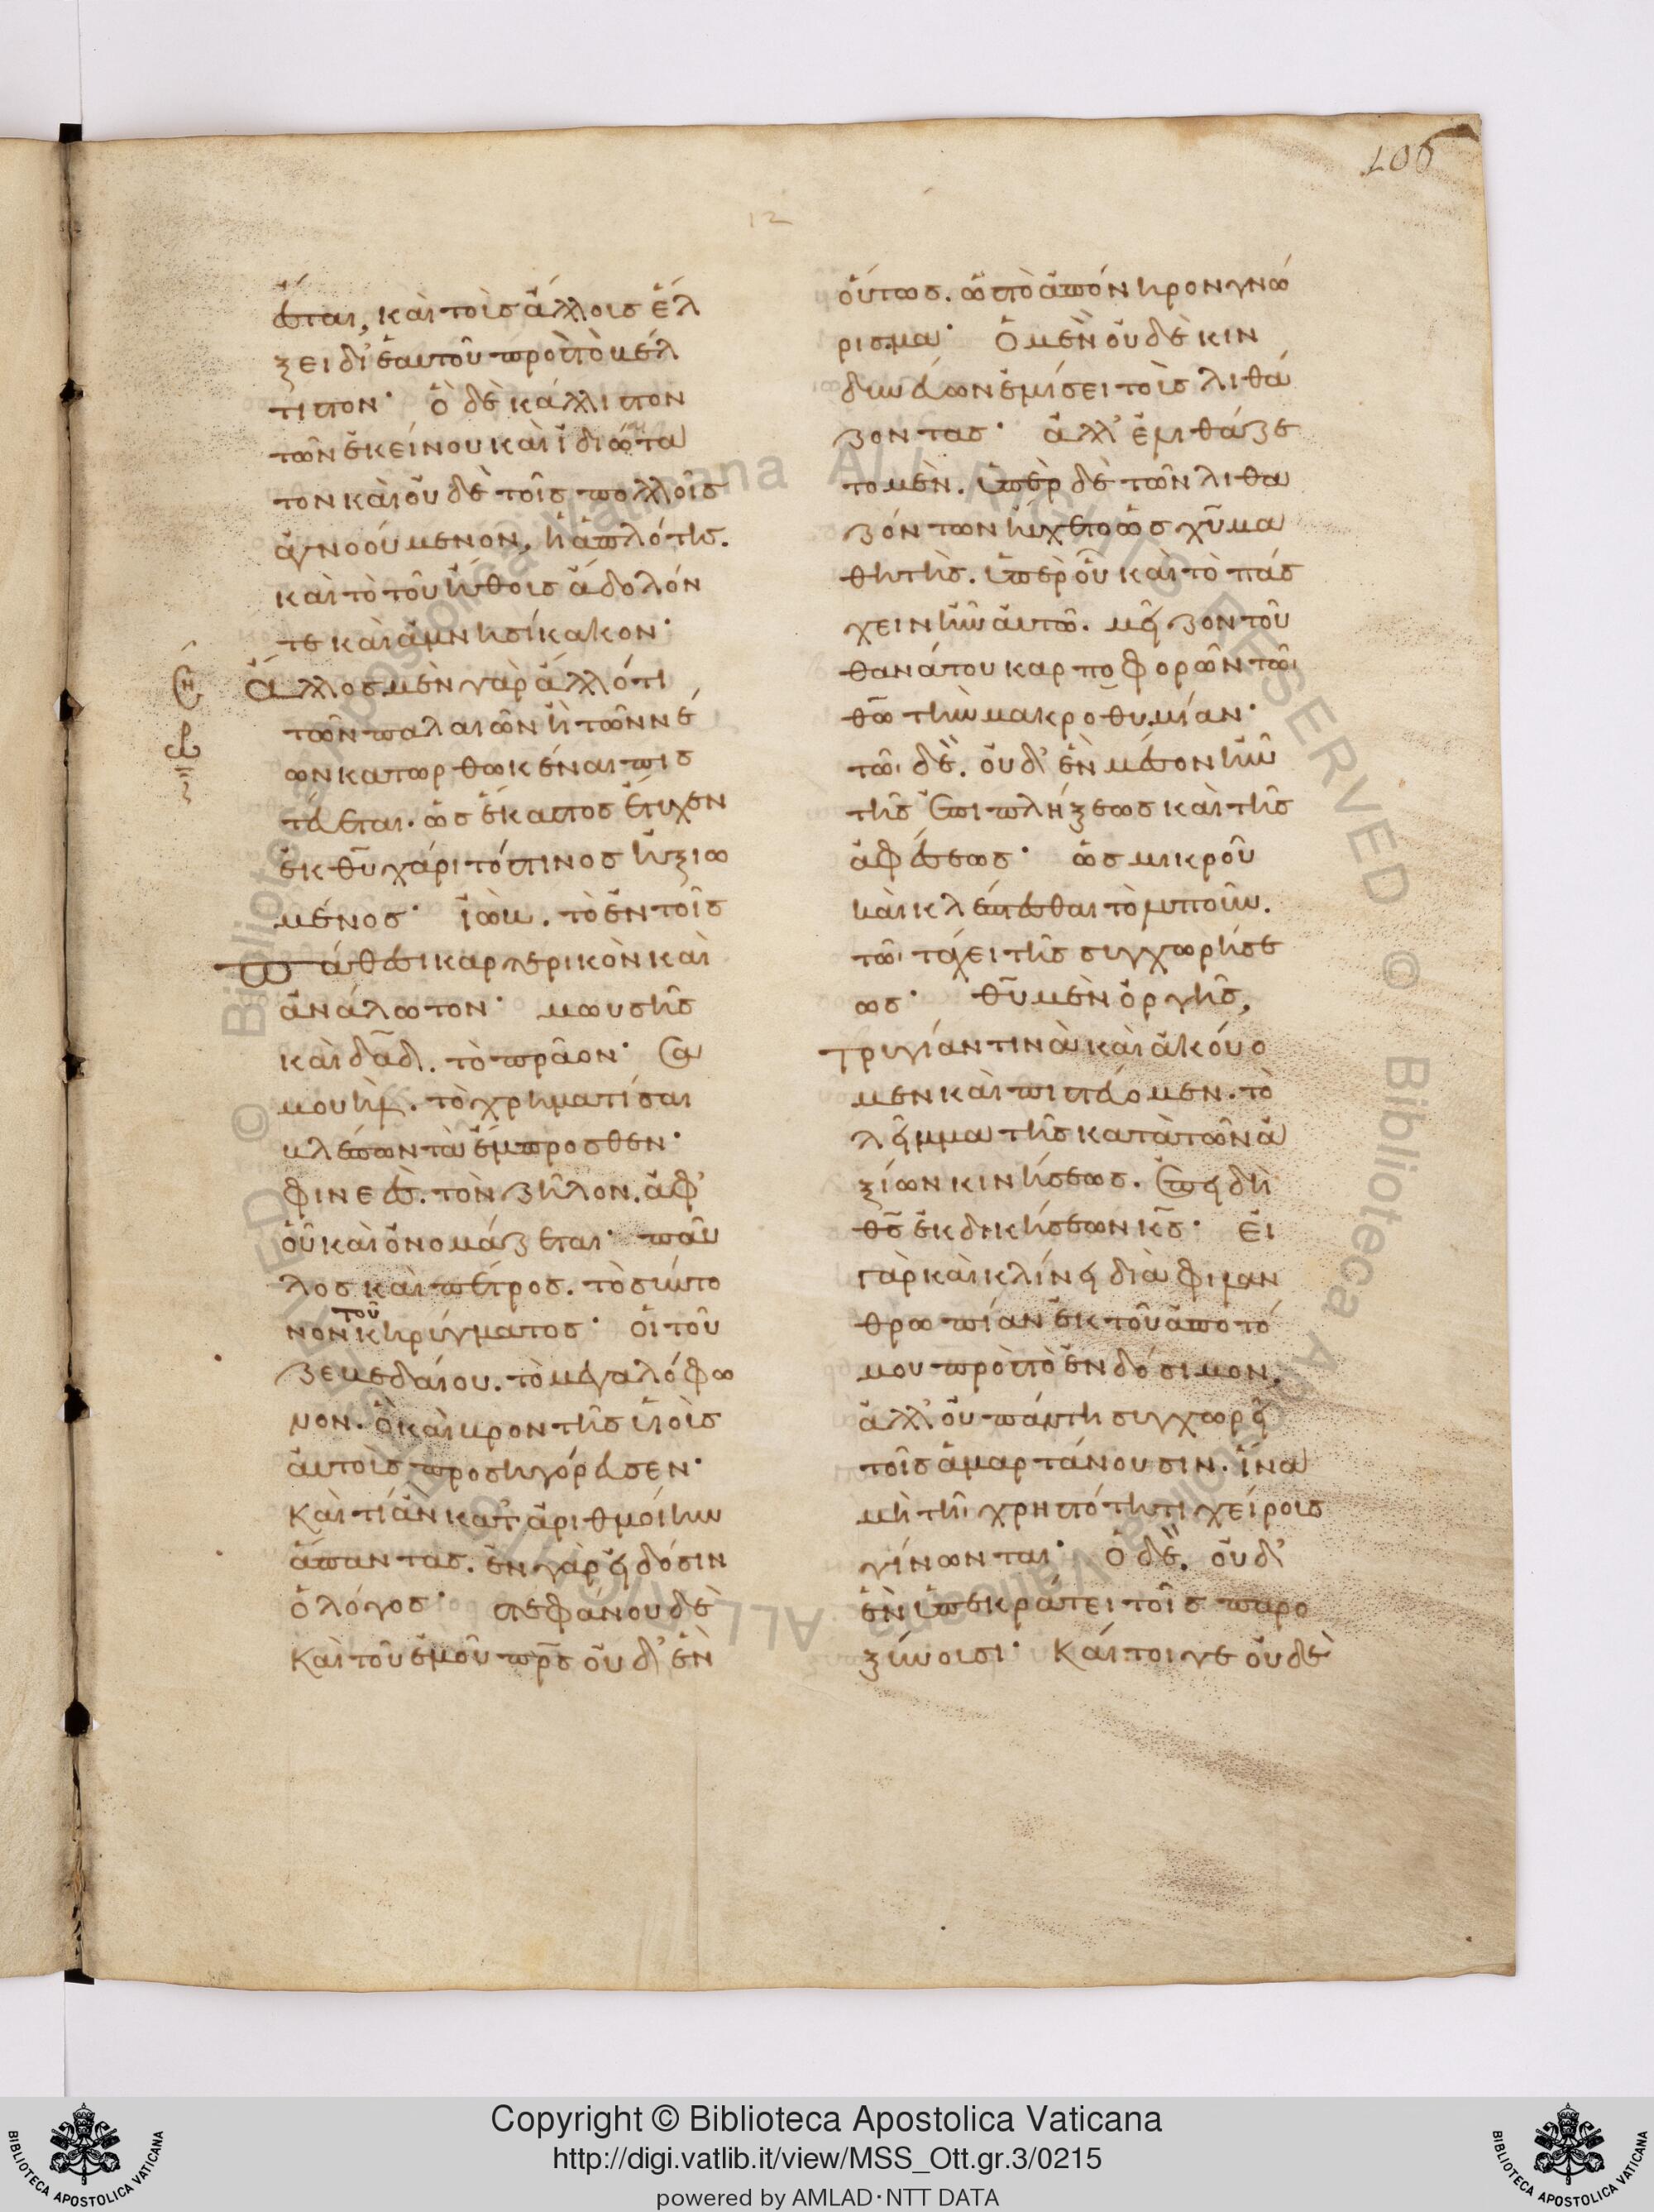 106
12
έσται, καὶ τοῖς ἄλλοις ἕλ
ξει δι' ἑαυτοῦ πρὸς τὸ βέλ
τιστον· ὃ δὲ κάλλιστον
τῶν ἐκείνου καὶ ἰδιώτα
τον καὶ οὐδὲ τοῖς πολλοῖς
ἀγνοούμενον, ἡ ἁπλότης.
καὶ τὸ τοῦ ἤθους ἄδολόν
τε καὶ ἀμνησίκακον·
Ἄλλος μὲν γὰρ ἄλλό τι
τῶν παλαιῶν ἢ τῶν νέ
ων κατωρθωκέναι πισ
τεύεται. ὡς ἕκαστος ἔτυχεν
ἐκ θυ χάριτός τινος ἠξιω
μένος· ἰὼβ. τὸ ἐν τοῖς
πάθεσι καρτερικὸν καὶ
ἀνάλωτον· μωυσῆς
καὶ δαδ. τὸ πρᾶον· σα
μουὴλ. τὸ χρηματίσαι
βλέπων τὰ ἔμπροσθεν·
φινεὲς. τὸν ζῆλον. ἀφ'
οὗ καὶ ὀνομάζεται· παῦ
λος καὶ πέτρος. τὸ σύντο
νον τοῦ κηρύγματος· οἱ τοῦ
ζεβεδαίου. τὸ μεγαλόφω
νον. ὃ καὶ βροντῆς υἱοὺς
αὐτοὺς προσηγόρευσεν·
Καὶ τί ἂν κατ' ἀριθμοίην
ἅπαντας. ἐν γὰρ εἰδόσιν
ὁ λόγος· στεφάνου δὲ
Καὶ τοῦ ἐμοῦ πρς οὐδ' ἓν
οὕτως. ὡς τὸ ἀπόνηρον γνώ
ρισμα· Ὁ μὲν οὐδὲ κιν
δυνεύων ἐμίσει τοὺς λιθά
ζοντας· ἀλλ' ἐλιθάζε
το μὲν. ὑπὲρ δὲ τῶν λιθα
ζόντων ηὔχετο ὡς χυ μα
θητὴς. ὑπὲρ οὗ καὶ τὸ πάσ
χειν ἦν αὐτῶ. μεῖζον τοῦ
θανάτου καρποφορῶν τῶι
θω τὴν μακροθυμίαν·
τῶι δὲ. οὐδ' ἐν μέσον ἦν
τῆς ἐπιπλήξεως καὶ τῆς
ἀφέσεως· ὡς μικροῦ
καὶ κλέπτεσθαι τὸ λυποῦν.
τῶι τάχει τῆς συγχωρήσε
ως· θυ μὲν ὀργῆς,
τρυγίαν τινὰ καὶ ἀκούο
μεν καὶ πιστεύομεν. τὸ
λεῖμμα τῆς κατὰ τῶν ἀ
ξίων κινήσεως. ἐπειδὴ
θς ἐκδικήσεων κς· Εἰ
γὰρ καὶ κλίνει διὰ φιλαν
θρωπίαν ἐκ τοῦ ἀποτό
μου πρὸς τὸ ἐνδόσιμον,
ἀλλ' οὐ πάντη συγχωρεῖ
τοῖς ἁμαρτάνουσιν. ἵνα
μὴ τῆι χρηστότητι χείρους
γίνωνται· ὁ δὲ. οὐδ'
ἓν ὑπεκράτει τοῖς παρο
ξύνουσι· Καίτοι γε οὐδὲ
Copyright © Biblioteca Apostolica Vaticana
http://digi.vatlib.it/view/MSS_Ott.gr.3/0215
powered by AMLAD·NTT DATA
BIBLIOTECA APOSTOLICA VATICANA
BIBLIOTECA APOSTOLICA VATICANA